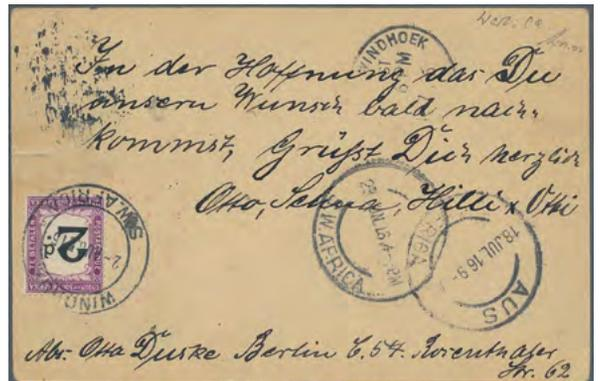 In der Hoffnung das Du
unsern Wunsch bald nach-
kommst, Grüßt Dich herzlich
Otto, Hilli x Otti
WINDHOEK
S.W. AFRICA
2 d.
W. AFRICA
AUS
18 JUL 16 9-
Abs. Otto Duske Berlin C. 54. Rosenthaler
Str. 62